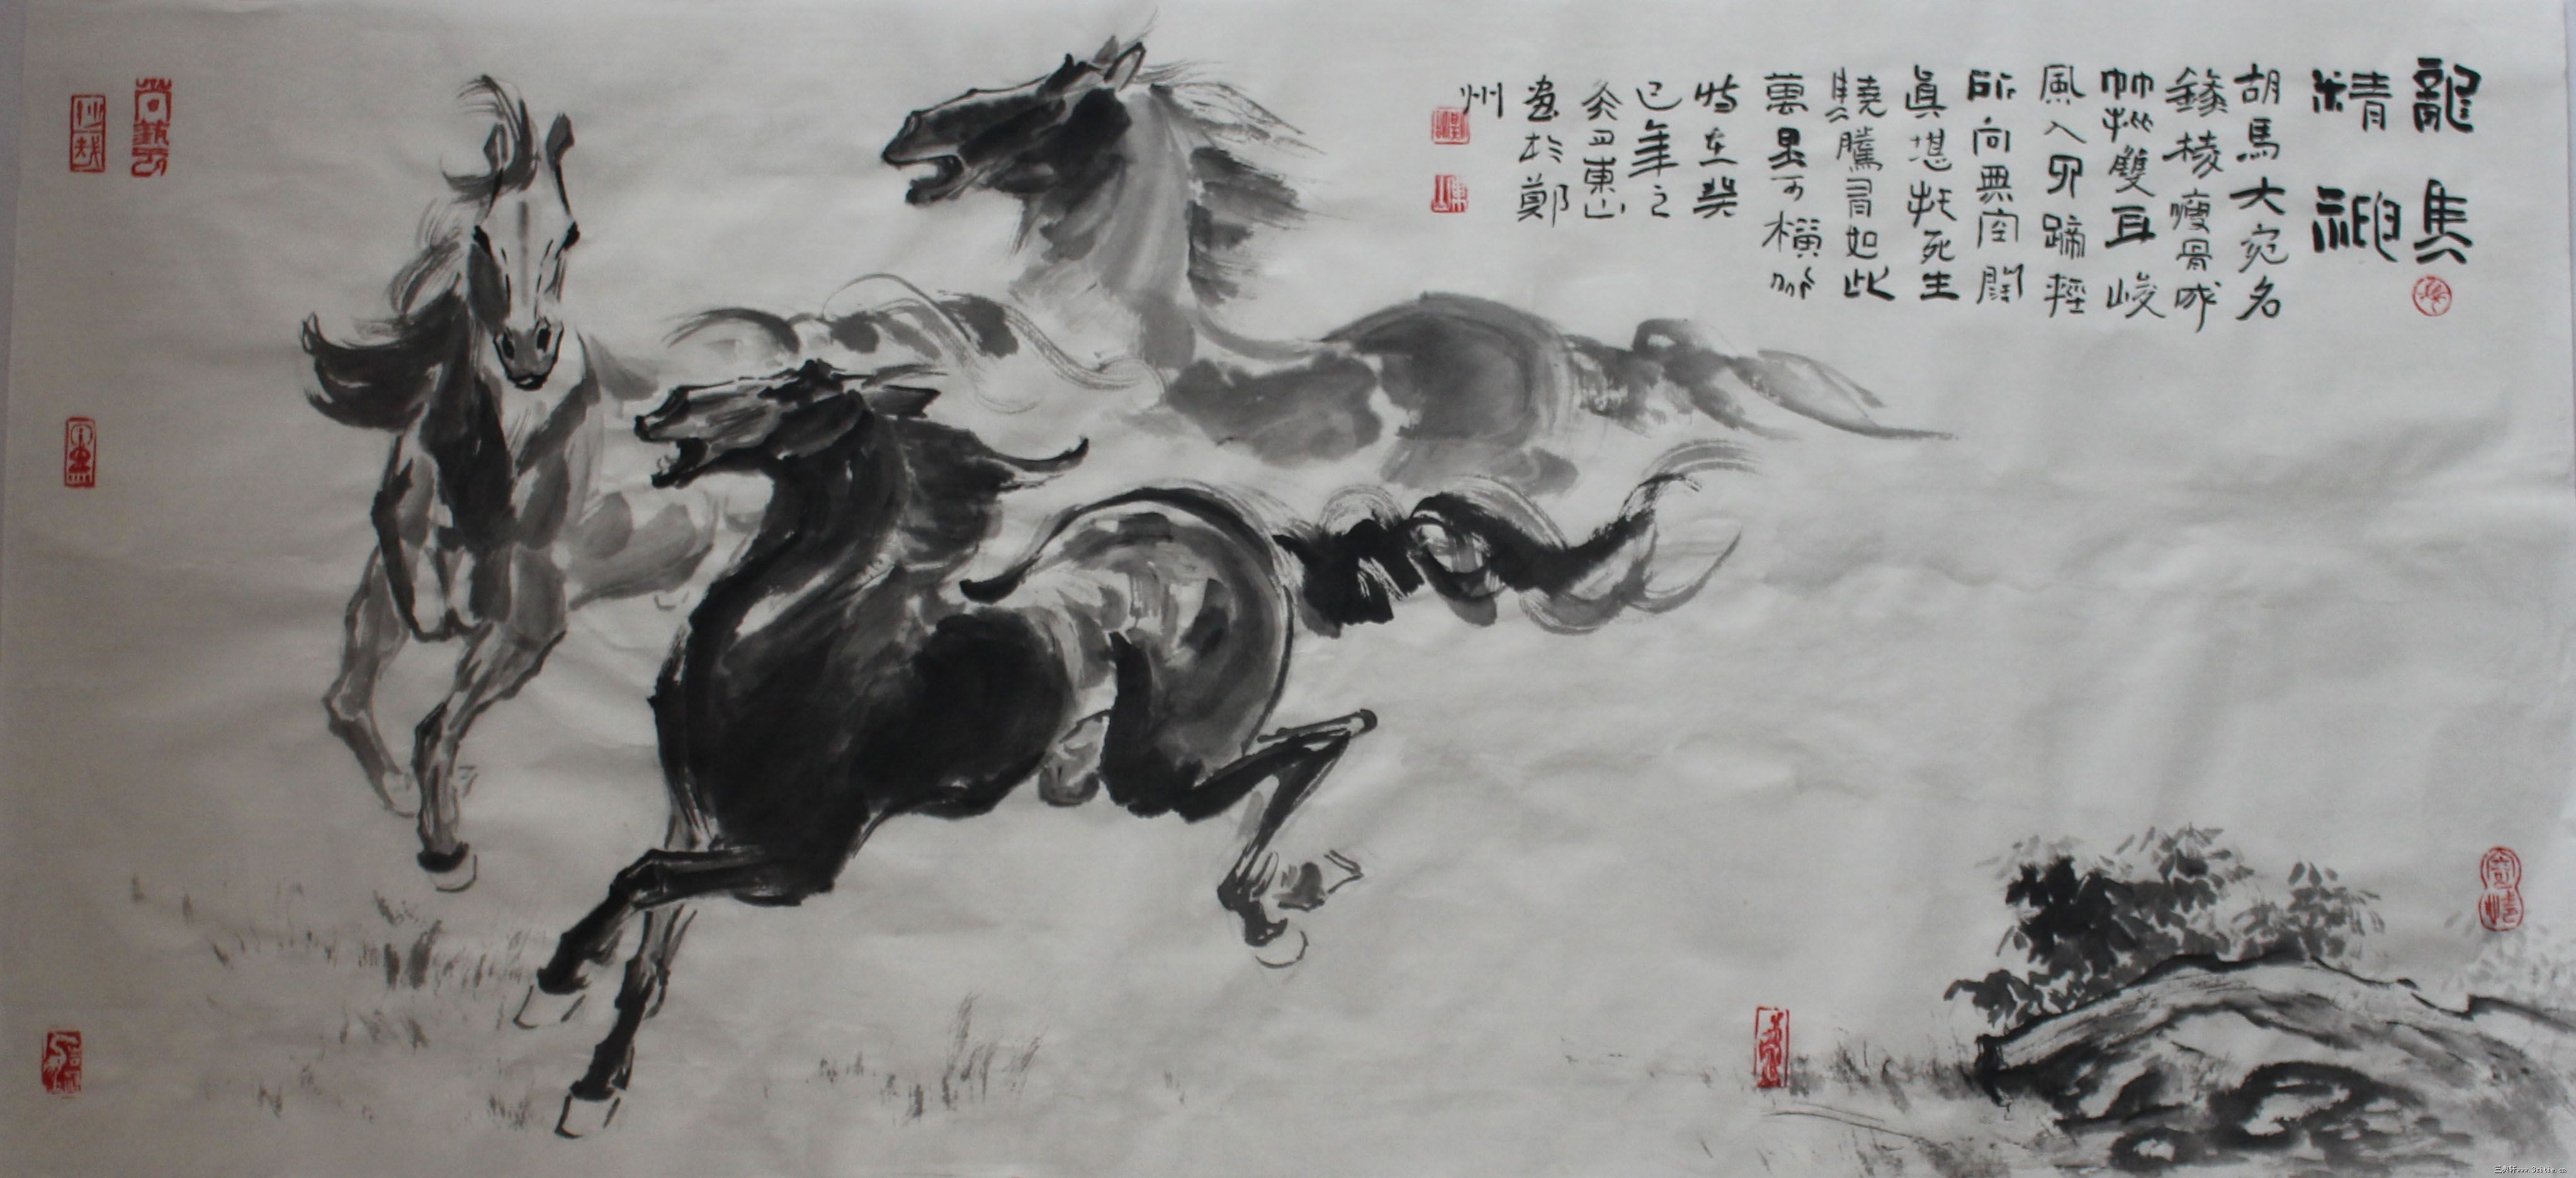 龍馬
精神
胡馬大宛名
鋒棱瘦骨成
竹批雙耳峻
風入四蹄輕
所向無空闊
真堪托死生
驍騰有如此
萬里可橫行
時在癸
巳年之
冬月東山
畫於鄭
州
www.3zitie.cn